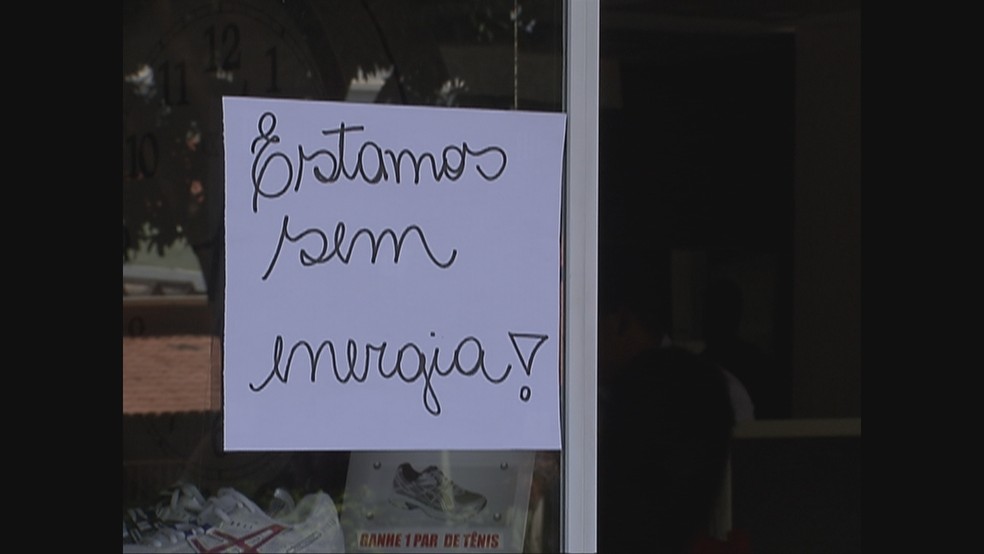 12
11
1
10
Estamos
sem
energia!
GANHE 1 PAR DE TÊNIS